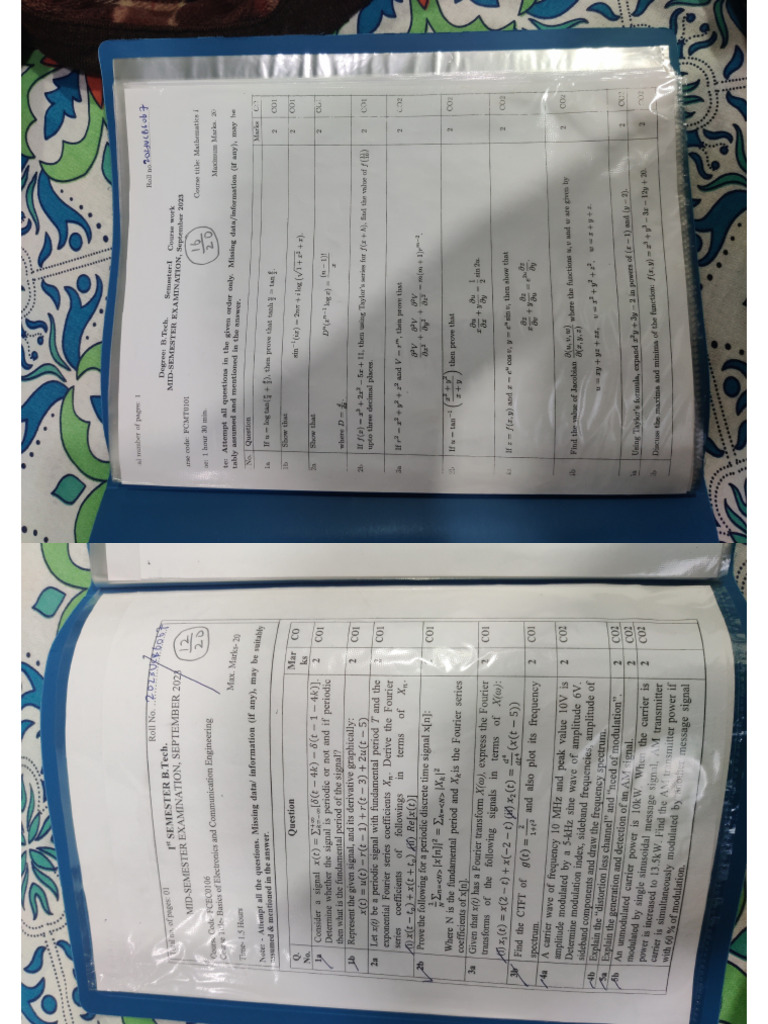 Roll no 2023UCB6067
Degree: B.Tech. Semester:I Course work
MID-SEMESTER EXAMINATION, September 2023
Course title: Mathematics I
number of pages: 1
code: FCMT0101
1 hour 30 min.
16/20
Maximum Marks. 20
Attempt all questions in the given order only. Missing data/information (if any), may be
tably assumed and mentioned in the answer.
No. Question Marks
1a If u = log tan(π/4 + θ/2), then prove that tanh u/2 = tan θ/2. 2 CO1
1b Show that 2 CO1
sin⁻¹(ix) = 2nπ + i log(√1 + x² + x).
2a Show that 2
Dⁿ(xⁿ⁻¹ log x) = (n − 1)!/x
where D = d/dx.
2b If f(x) = x³ + 2x² − 5x + 11, then using Taylor's series for f(x + h), find the value of 2 CO1
upto three decimal places.
3a If r² = x² + y² + z² and V = rᵐ, then prove that 2 CO2
∂²V/∂x² + ∂²V/∂y² + ∂²V/∂z² = m(m + 1)rᵐ⁻².
If u = tan⁻¹ then prove that 2 CO1
x ∂u/∂x + y ∂u/∂y = 1/2 sin 2u.
If z = f(x, y) and x = eᵘ cos v, y = eᵘ sin v, then show that 2
x ∂z/∂v + y ∂z/∂u = e²ᵘ ∂z/∂y
Find the value of Jacobian ∂(u, v, w)/∂(x, y, z) where the functions u, v and w are given by 2 CO2
u = xy + yz + zx, v = x² + y² + z², w = x + y + z.
Using Taylor's formula, expand x²y + 3y − 2 in powers of (x − 1) and (y − 2). 2
Discuss the maxima and minima of the function: f(x, y) = x³ + y³ − 3x − 12y + 20. 2 CO2
of pages: 01
Roll No. 2023UCB6067
1st SEMESTER B.Tech.
MID-SEMESTER EXAMINATION, SEPTEMBER 2023
12/20
Code: FCEC0106
Basics of Electronics and Communication Engineering
Hours
Max. Marks- 20
Note:- Attempt all the questions. Missing data/ information (if any), may be suitably
assumed & mentioned in the answer.
Q. No. Question Marks CO
1a Consider a signal x(t) = Σ [δ(t − 4k) − δ(t − 1 − 4k)]. 2 CO1
Determine whether the signal is periodic or not and if periodic
then what is the fundamental period of the signal?
1b Represent the given signal, and its derivative graphically: 2 CO1
x(t) = u(t) − r(t − 1) + r(t − 3) + 2u(t − 5)
2a Let x(t) be a periodic signal with fundamental period T and the 2 CO1
exponential Fourier series coefficients Xₙ. Derive the Fourier
series coefficients of followings in terms of Xₙ.
(i) x(t − t₀) + x(t + t₀) (ii) Re[x(t)]
2b Prove the following for a periodic discrete time signal x[n]: 2 CO1
1/N Σn=<N> |x[n]|² = Σk=<N> |Xk|²
Where N is the fundamental period and Xk is the Fourier series
coefficients of x[n]
3a Given that x(t) has a Fourier transform X(ω), express the Fourier 2 CO1
transforms of the following signals in terms of X(ω):
(i) x₁(t) = x(2 − t) + x(−2 − t) (ii) x₂(t) = (x(t − 5))
3b Find the CTFT of g(t) = 2/(1+t²) and also plot its frequency 2 CO1
spectrum.
4a A carrier wave of frequency 10 MHz and peak value 10V is 2 CO2
amplitude modulated by a 5-kHz sine wave of amplitude 6V.
Determine modulation index, sideband frequencies, amplitude of
sideband components and draw the frequency spectrum.
4b Explain the "distortion less channel" and "need of modulation". 2 CO2
5a Explain the generation and detection of an AM signal. 2 CO2
5b An unmodulated carrier power is 10kW. When the carrier is 2 CO2
modulated by single sinusoidal message signal, AM transmitter
power is increased to 13.5kW. Find the AM transmitter power if
carrier is simultaneously modulated by another message signal
with 60 % of modulation.